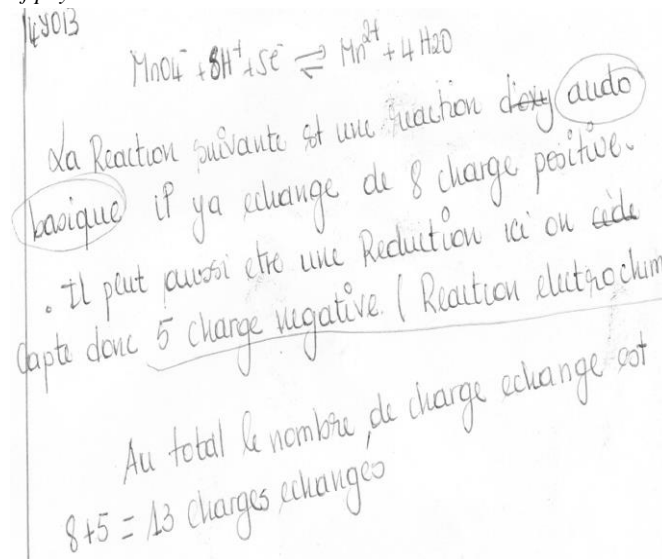 14YO13
MnO4⁻ + 8H⁺ + 5e⁻ ⇌ Mn²⁺ + 4 H2O
La Reaction suivante est une reaction d'oxy acido
basique if ya echange de 8 charge positive.
. Il peut aussi etre une Reduction ici on cède
Capte donc 5 charge negative. ( Reaction electrochim
Au total le nombre de charge echange est
8+5 = 13 charges echanges